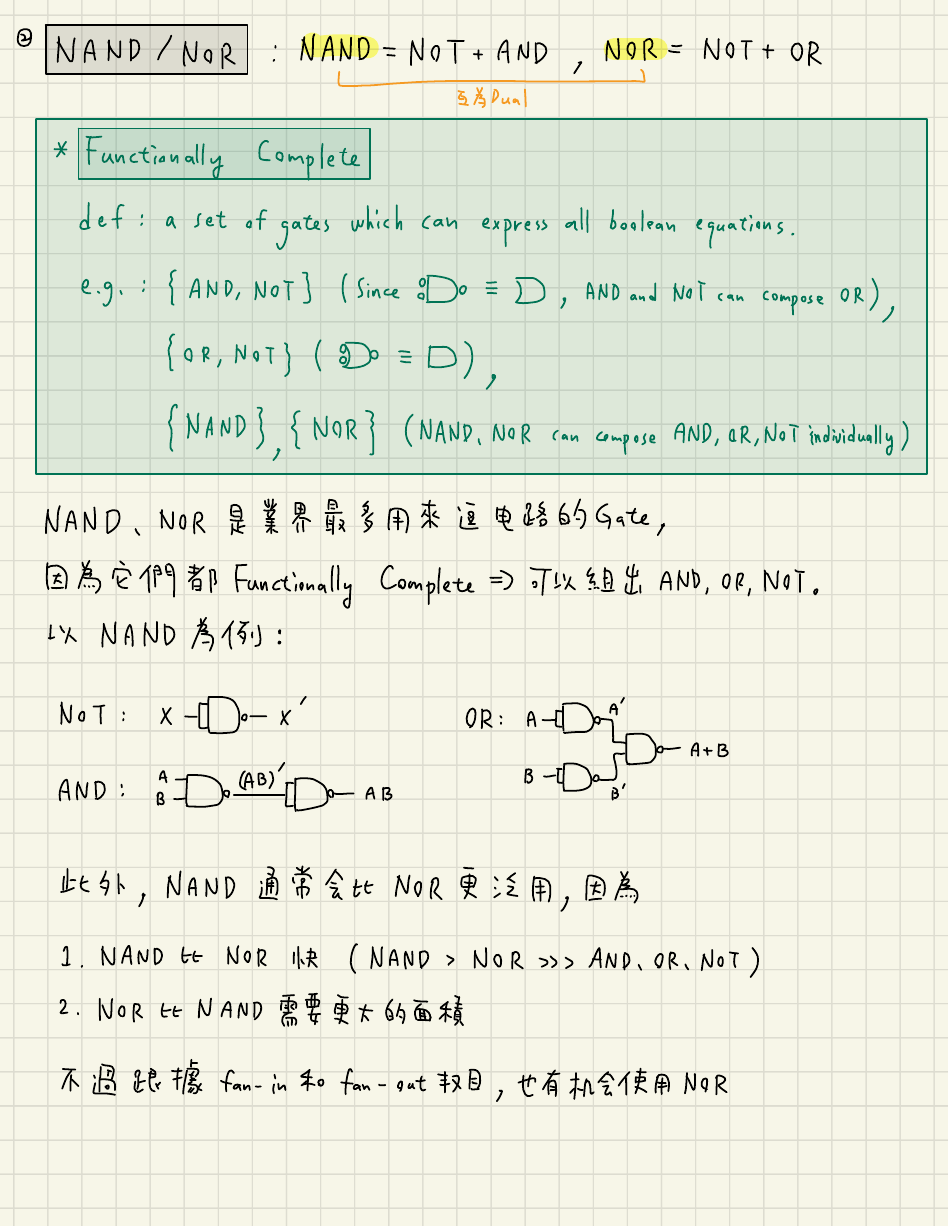 ② NAND / NOR : NAND = NOT + AND , NOR = NOT + OR
互為Dual
* Functionally Complete
def : a set of gates which can express all boolean equations.
e.g. : { AND, NOT } ( Since ≡ , AND and NOT can compose OR ) ,
{ OR, NOT } ( ≡ ) ,
{ NAND } , { NOR } ( NAND、NOR can compose AND, OR, NOT individually )
NAND、NOR 是業界最多用來這电路的Gate,
因為它們都 Functionally Complete ⇒ 可以組出 AND, OR, NOT。
以 NAND 為例 :
NOT : X X′
OR : A A′
B B′ A+B
AND : A B (AB)′ AB
此外 , NAND 通常会比 NOR 更泛用 , 因為
1. NAND 比 NOR 快 ( NAND > NOR >>> AND、OR、NOT )
2. NOR 比 NAND 需要更大的面積
不過跟據 fan-in 和 fan-out 数目 , 也有机会使用 NOR